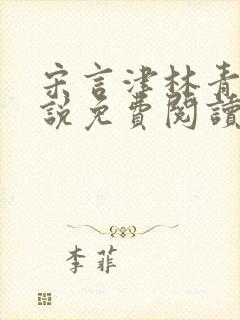 宋言津林青
說免費閱讀
李菲